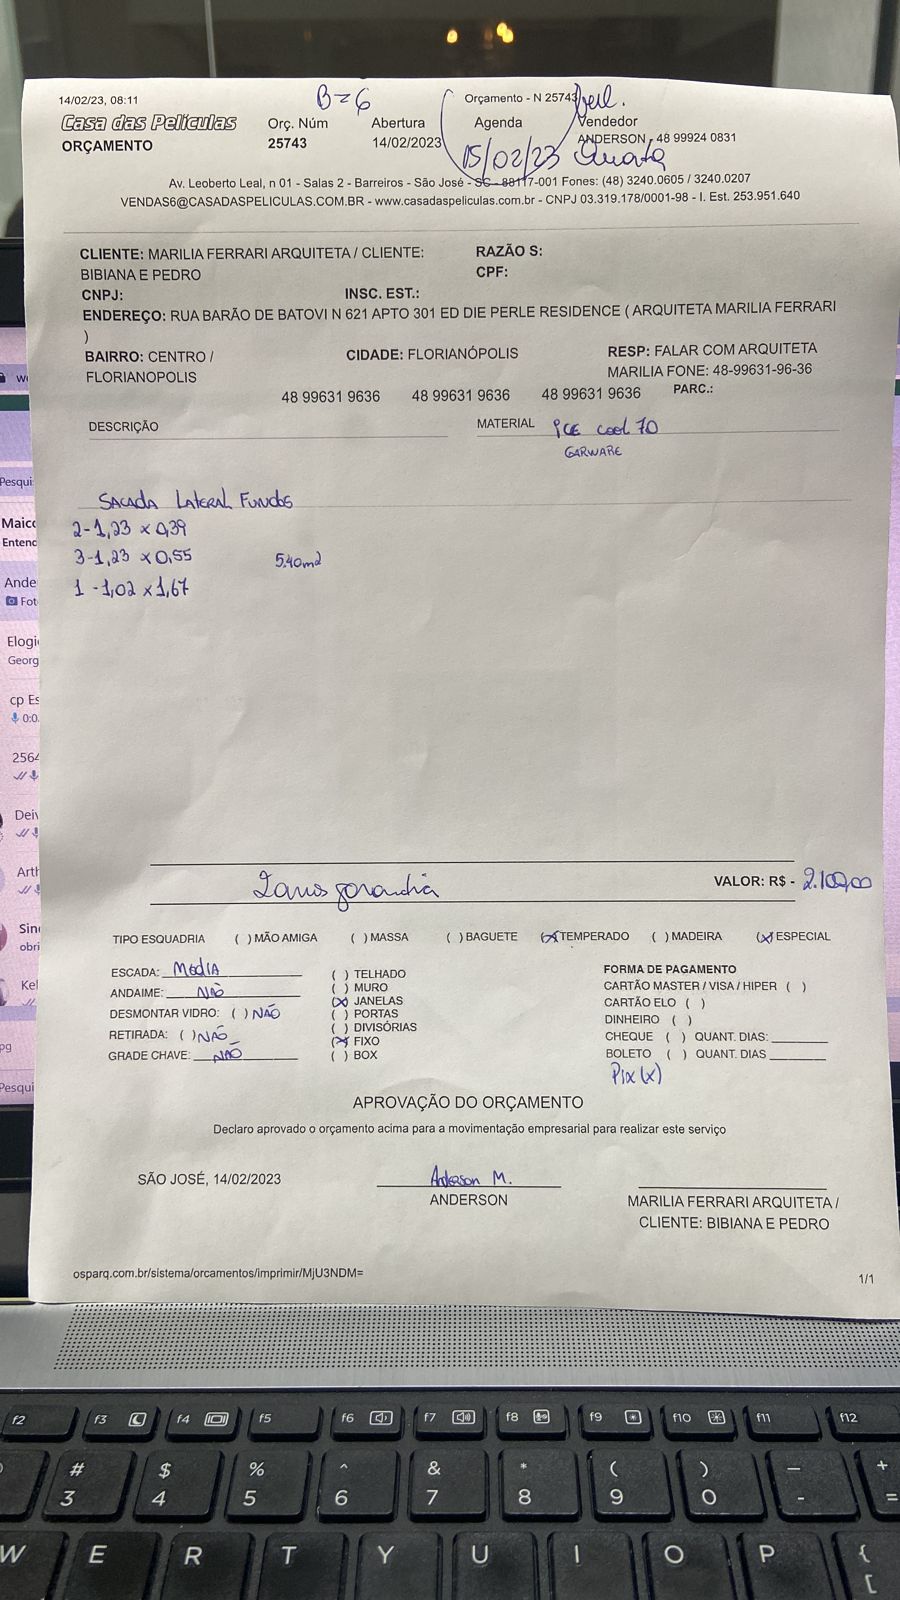 14/02/23, 08:11
B=6
Orçamento - N 25743
Casa das Películas
Orç. Núm
Abertura
Agenda
Vendedor
ORÇAMENTO
25743
14/02/2023
ANDERSON - 48 99924 0831
15/02/23 Quarta
Av. Leoberto Leal, n 01 - Salas 2 - Barreiros - São José - SC - 88117-001 Fones: (48) 3240.0605 / 3240.0207
VENDAS6@CASADASPELICULAS.COM.BR - www.casadaspeliculas.com.br - CNPJ 03.319.178/0001-98 - I. Est. 253.951.640
CLIENTE: MARILIA FERRARI ARQUITETA / CLIENTE: RAZÃO S:
BIBIANA E PEDRO CPF:
CNPJ: INSC. EST.:
ENDEREÇO: RUA BARÃO DE BATOVI N 621 APTO 301 ED DIE PERLE RESIDENCE ( ARQUITETA MARILIA FERRARI
)
BAIRRO: CENTRO / CIDADE: FLORIANÓPOLIS RESP: FALAR COM ARQUITETA
FLORIANOPOLIS MARILIA FONE: 48-99631-96-36
48 99631 9636 48 99631 9636 48 99631 9636 PARC.:
DESCRIÇÃO MATERIAL ICE cool 70
GARWARE
SACADA LATERAL FUNDOS
2-1,23 x 0,39
3-1,23 x 0,55 5.40m2
1 -1,02 x 1,67
2 anos garantia VALOR: R$ - 2.100,00
TIPO ESQUADRIA ( ) MÃO AMIGA ( ) MASSA ( ) BAGUETE (x) TEMPERADO ( ) MADEIRA (x) ESPECIAL
ESCADA: MEDIA ( ) TELHADO FORMA DE PAGAMENTO
ANDAIME: NÃO ( ) MURO CARTÃO MASTER / VISA / HIPER ( )
(x) JANELAS CARTÃO ELO ( )
DESMONTAR VIDRO: ( ) NÃO ( ) PORTAS DINHEIRO ( )
RETIRADA: ( ) NÃO ( ) DIVISÓRIAS CHEQUE ( ) QUANT. DIAS:
(x) FIXO
GRADE CHAVE: NÃO ( ) BOX BOLETO ( ) QUANT. DIAS
Pix (x)
APROVAÇÃO DO ORÇAMENTO
Declaro aprovado o orçamento acima para a movimentação empresarial para realizar este serviço
SÃO JOSÉ, 14/02/2023 Anderson M.
ANDERSON MARILIA FERRARI ARQUITETA /
CLIENTE: BIBIANA E PEDRO
osparq.com.br/sistema/orcamentos/imprimir/MjU3NDM=
1/1
Pesqui
Ande
Fot
Elogi
Georg
cp Es
0:0
2564
Deiv
Arth
obri
Kel
pg
Pesqui
f2 f3 f4 f5 f6 f7 f8 f9 f10 f11 f12
# $ % ^ & * ( ) _ +
3 4 5 6 7 8 9 0 - =
W E R T Y U I O P { [